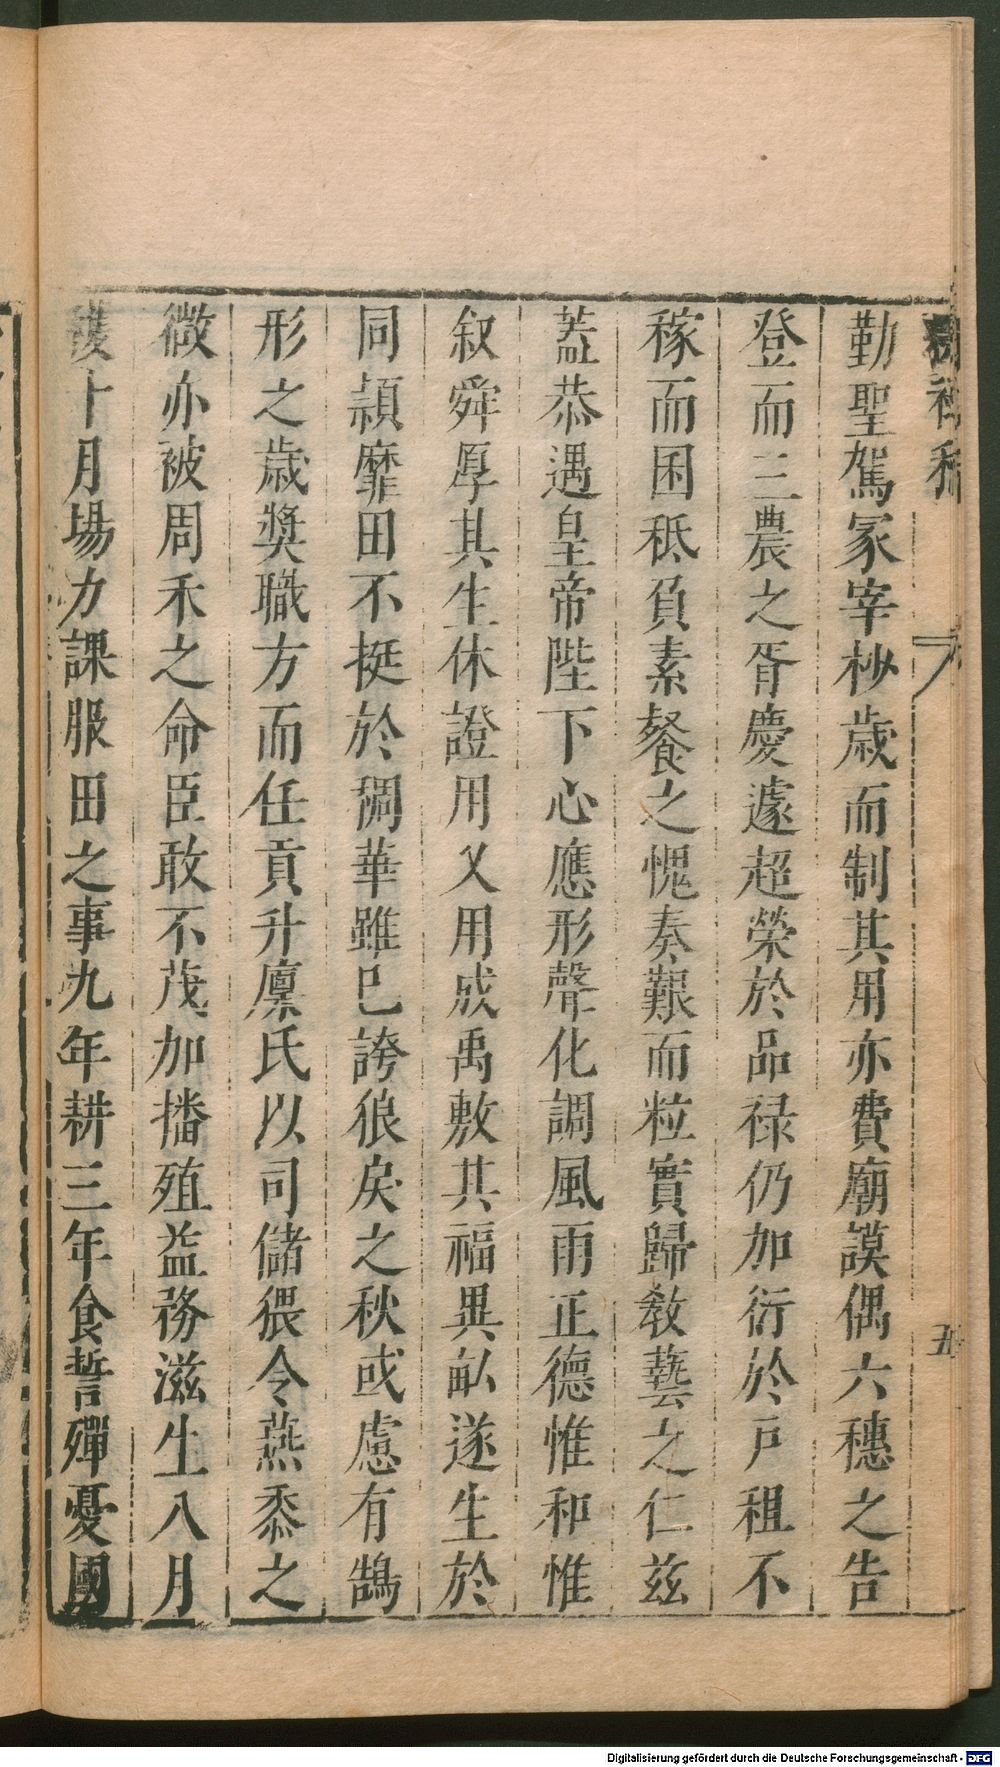 勤聖駕冢宰杪歲而制其用亦費廟謨偶六穗之告
登而三農之胥慶遽超榮於品祿仍加衍於戶租不
稼而囷秪負素餐之愧奏艱而粒實歸敎藝之仁兹
蓋恭遇皇帝陛下心應形聲化調風雨正德惟和惟
叙舜厚其生休證用乂用成禹敷其福異畝遂生於
同頴靡田不挺於稠華雖已誇狼戾之秋或慮有鵠
形之歲奬職方而任貢升廩氏以司儲猥令燕黍之
微亦被周禾之命臣敢不茂加播殖益務滋生八月
十月場力課服田之事九年耕三年食誓殫憂國
五
Digitalisierung gefördert durch die Deutsche Forschungsgemeinschaft - DFG